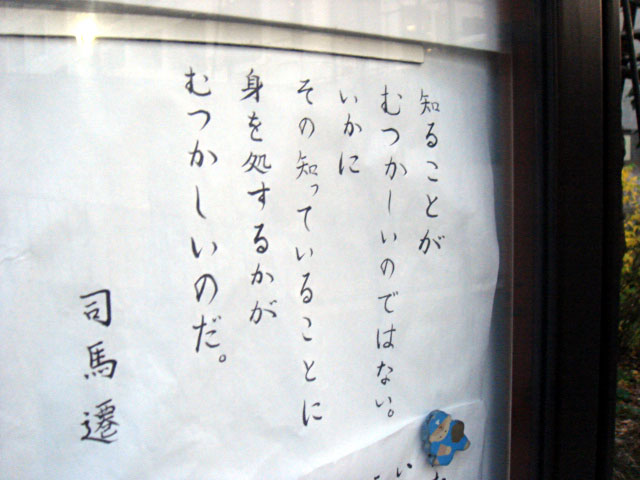 知ることが
むつかしいのではない。
いかに
その知っていることに
身を処するかが
むつかしいのだ。
司馬遷